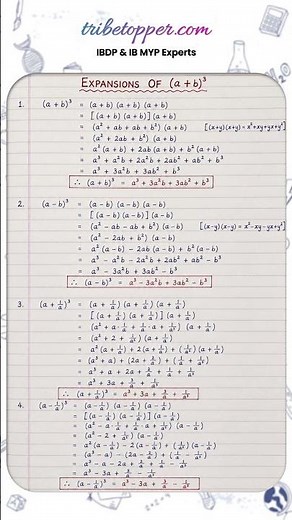 tribetopper.com
IBDP & IB MYP Experts
EXPANSIONS OF (a+b)³
1. (a+b)³ = (a+b) (a+b) (a+b)
= [(a+b) (a+b)] (a+b)
= (a² + ab + ab + b²) (a+b) [(x+y)(x+y) = x²+xy+yx+y²]
= (a² + 2ab + b²) (a+b)
= a² (a+b) + 2ab (a+b) + b² (a+b)
= a³ + a²b + 2a²b + 2ab² + ab² + b³
= a³ + 3a²b + 3ab² + b³
∴ (a+b)³ = a³ + 3a²b + 3ab² + b³
2. (a-b)³ = (a-b) (a-b) (a-b)
= [(a-b) (a-b)] (a-b)
= (a² - ab - ab + b²) (a-b) [(x-y)(x-y) = x²-xy-yx+y²]
= (a² - 2ab + b²) (a-b)
= a² (a-b) - 2ab (a-b) + b² (a-b)
= a³ - a²b - 2a²b + 2ab² + ab² - b³
= a³ - 3a²b + 3ab² - b³
∴ (a-b)³ = a³ - 3a²b + 3ab² - b³
3. (a+1/a)³ = (a+1/a) (a+1/a) (a+1/a)
= [(a+1/a) (a+1/a)] (a+1/a)
= (a² + a·1/a + 1/a·a + 1/a²) (a+1/a)
= (a² + 2 + 1/a²) (a+1/a)
= a² (a+1/a) + 2 (a+1/a) + 1/a² (a+1/a)
= (a³ + a) + (2a + 2/a) + (1/a + 1/a³)
= a³ + a + 2a + 2/a + 1/a + 1/a³
= a³ + 3a + 3/a + 1/a³
∴ (a+1/a)³ = a³ + 3a + 3/a + 1/a³
4. (a-1/a)³ = (a-1/a) (a-1/a) (a-1/a)
= [(a-1/a) (a-1/a)] (a-1/a)
= (a² - 2 + 1/a²) (a-1/a)
= a² (a-1/a) - 2 (a-1/a) + 1/a² (a-1/a)
= a³ - 3a + 3/a - 1/a³
∴ (a-1/a)³ = a³ - 3a + 3/a - 1/a³